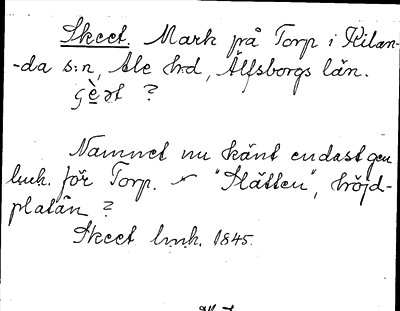 Skeet. Mark på Torp i Kilan-
-da s:n, Ale h:d, Älfsborgs län.
Namnet nu känt endast gen
lmk. för Torp. "Slätten", höjd-
platån?
Skeet lmk. 1845.